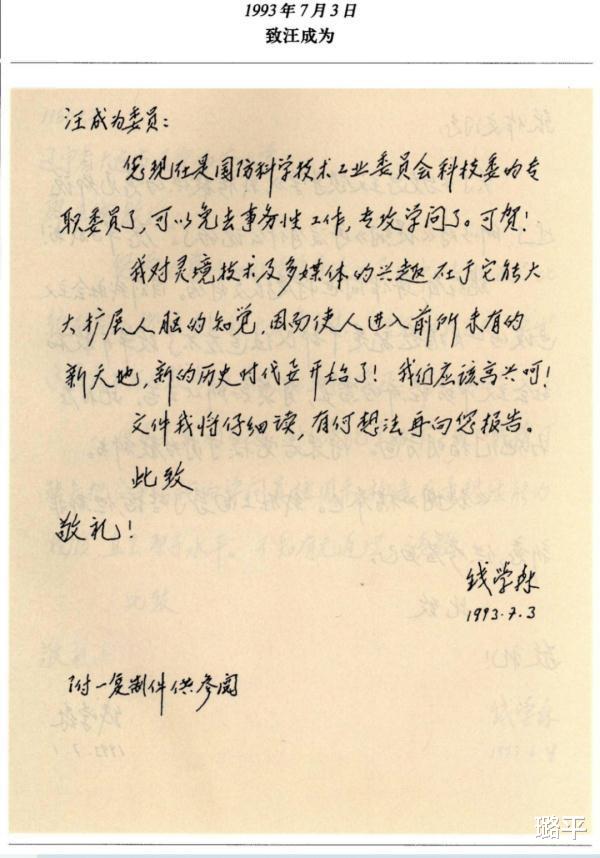 1993年7月3日
致汪成为
汪成为委员:
您现在是国防科学技术工业委员会科技委的专
职委员了,可以免去事务性工作,专攻学问了。可贺!
我对灵境技术及多媒体的兴趣在于它能大
大扩展人脑的知觉,因而使人进入前所未有的
新天地,新的历史时代要开始了!我们应该高兴呵!
文件我将仔细读,有何想法再向您报告。
此致
敬礼!
钱学森
1993.7.3
附一复制件供参阅
璐平